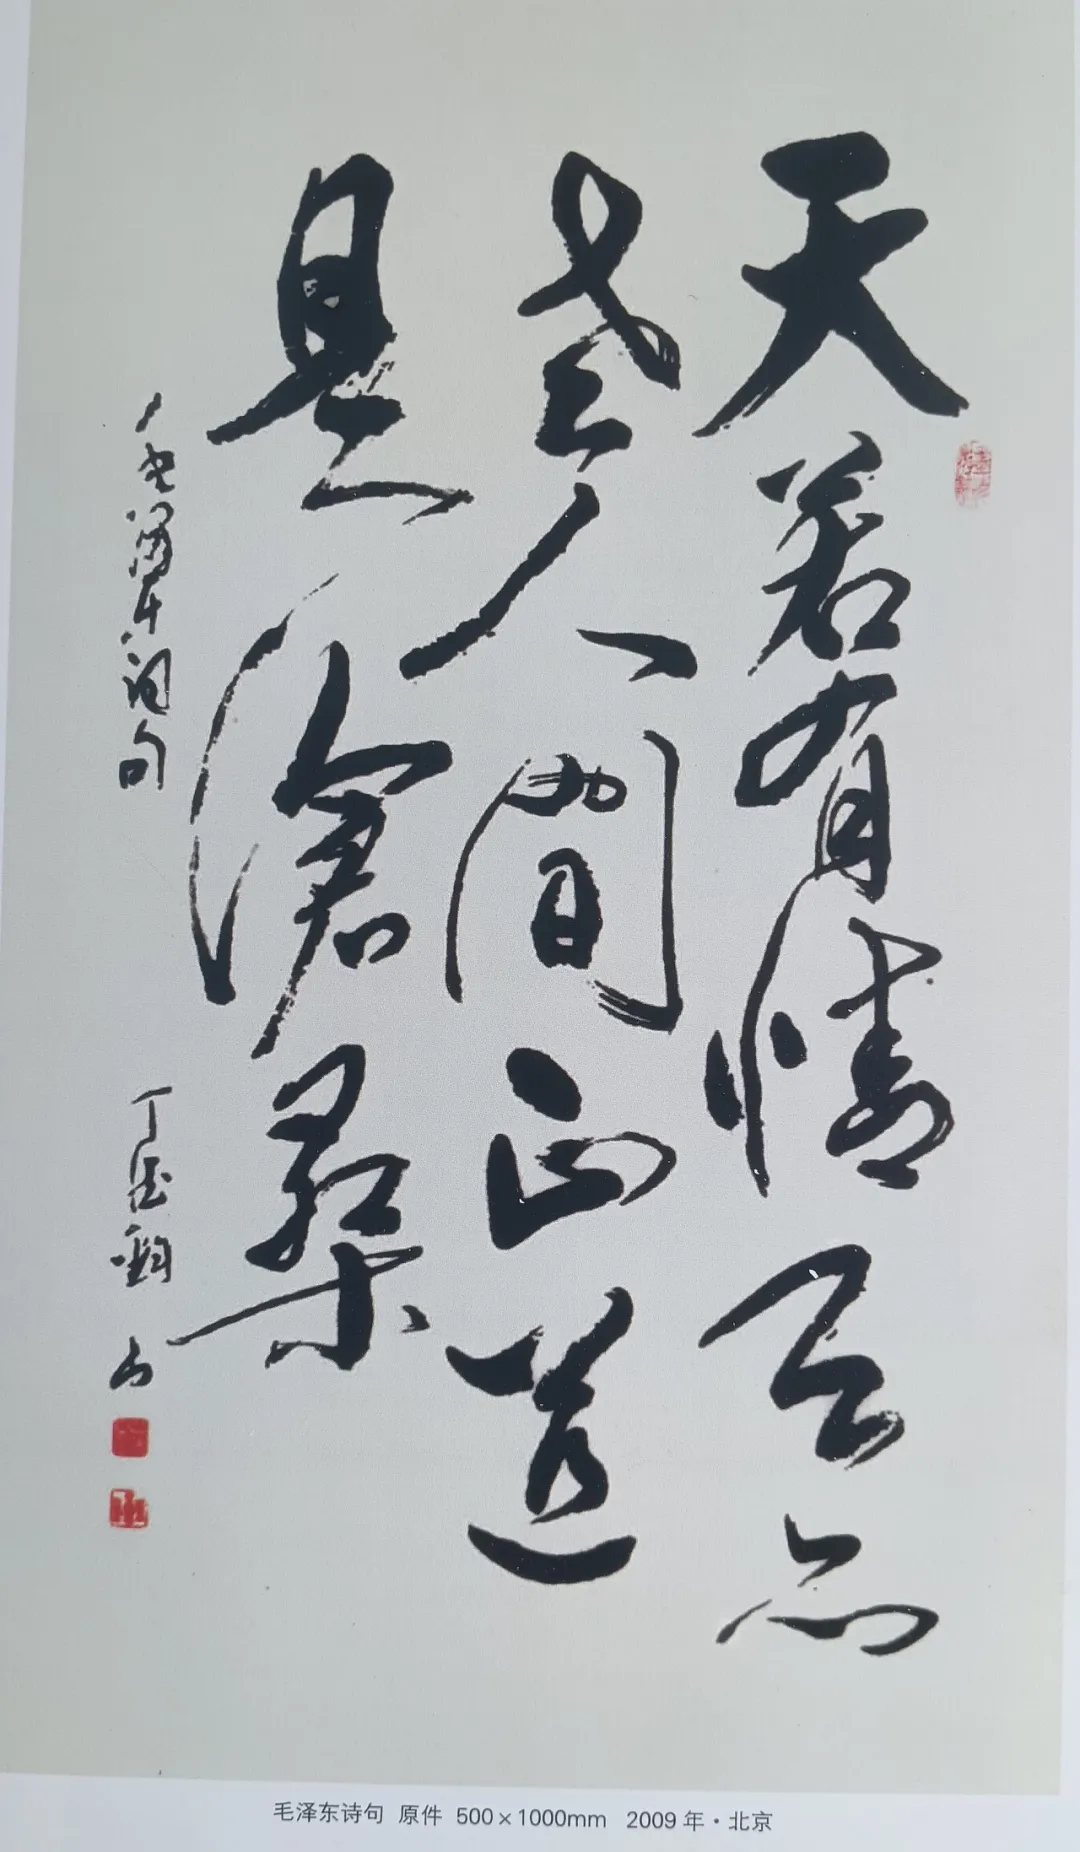 天若有情天亦
老人間正道
是滄桑
毛澤东詞句 丁
毛泽东诗句 原件 500×1000mm 2009年·北京